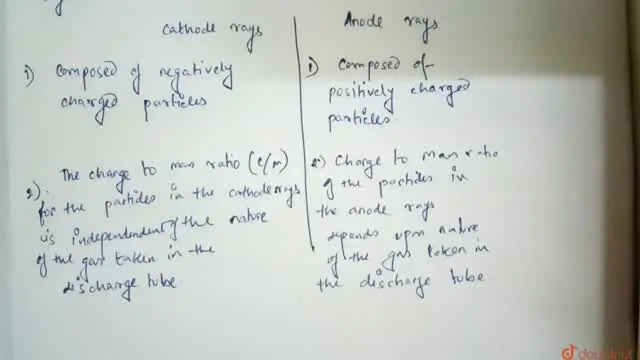 Cathode rays
1) Composed of negatively
charged particles
The charge to mass ratio (e/m)
2) for the particles in the cathode rays
is independent of the nature
of the gas taken in the
discharge tube
Anode rays
1) Composed of
positively charged
particles
2) Charge to mass ratio
of the particles in
the anode rays
depends upon nature
of the gas taken in
the discharge tube
doubtnut